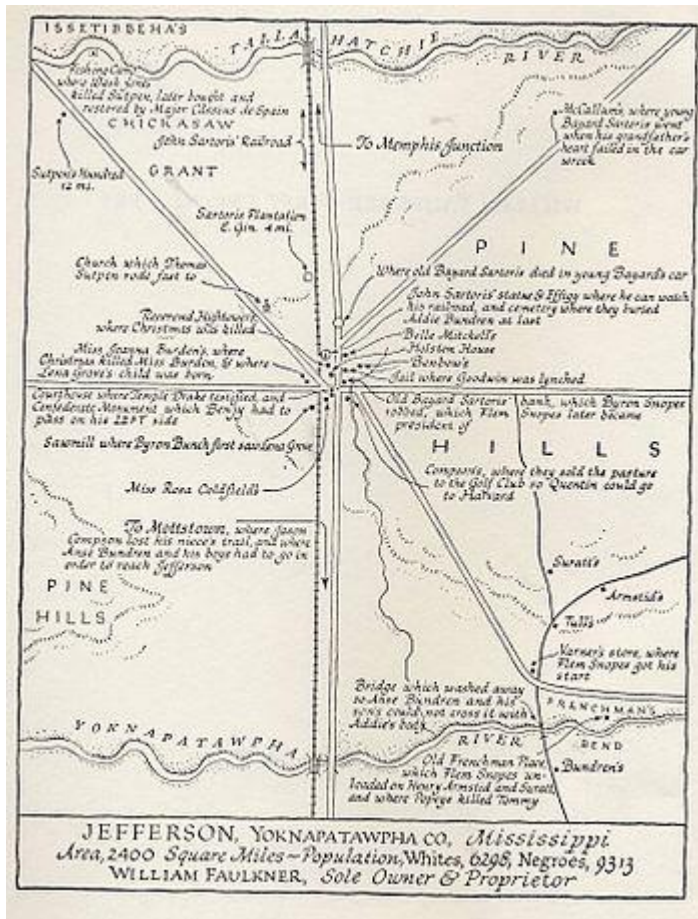 ISSETIBBEHA'S
TALLAHATCHIE RIVER
Fishing Camp
where Wash Jones
killed Sutpen, later bought and
restored by Major Cassius de Spain
CHICKASAW
GRANT
John Sartoris' Railroad
To Memphis Junction
McCallum's, where young
Bayard Sartoris went
when his grandfather's
heart failed in the car
wreck
Sutpen's Hundred
12 mi.
Sartoris Plantation
& Gin 4 mi.
PINE
HILLS
Church which Thomas
Sutpen rode fast to
Where old Bayard Sartoris died in young Bayard's car
John Sartoris' statue & Effigy where he can watch
his railroad, and cemetery where they buried
Addie Bundren at last
Reverend Hightower's,
where Christmas was killed
Belle Mitchell's
Holston House
Benbow's
Jail where Goodwin was lynched
Miss Joanna Burden's, where
Christmas killed Miss Burden, & where
Lena Grove's child was born
Courthouse where Temple Drake testified, and
Confederate Monument which Benjy had to
pass on his LEFT side
Old Bayard Sartoris' bank, which Byron Snopes
robbed, which Flem Snopes later became
president of
Sawmill where Byron Bunch first saw Lena Grove
Compson's, where they sold the pasture
to the Golf Club so Quentin could go
to Harvard
Miss Rosa Coldfield's
To Mottstown, where Jason
Compson lost his niece's trail, and where
Anse Bundren and his boys had to go in
order to reach Jefferson
PINE
HILLS
Suratt's
Armstid's
Tull's
Varner's store, where
Flem Snopes got his
start
Bridge which washed away
so Anse Bundren and his
sons could not cross it with
Addie's body
FRENCHMAN'S
BEND
YOKNAPATAWPHA RIVER
Old Frenchman Place,
which Flem Snopes un-
loaded on Henry Armstid and Suratt,
and where Popeye killed Tommy
Bundren's
JEFFERSON, YOKNAPATAWPHA CO., Mississippi
Area, 2400 Square Miles – Population, Whites, 6298; Negroes, 9313
WILLIAM FAULKNER, Sole Owner & Proprietor